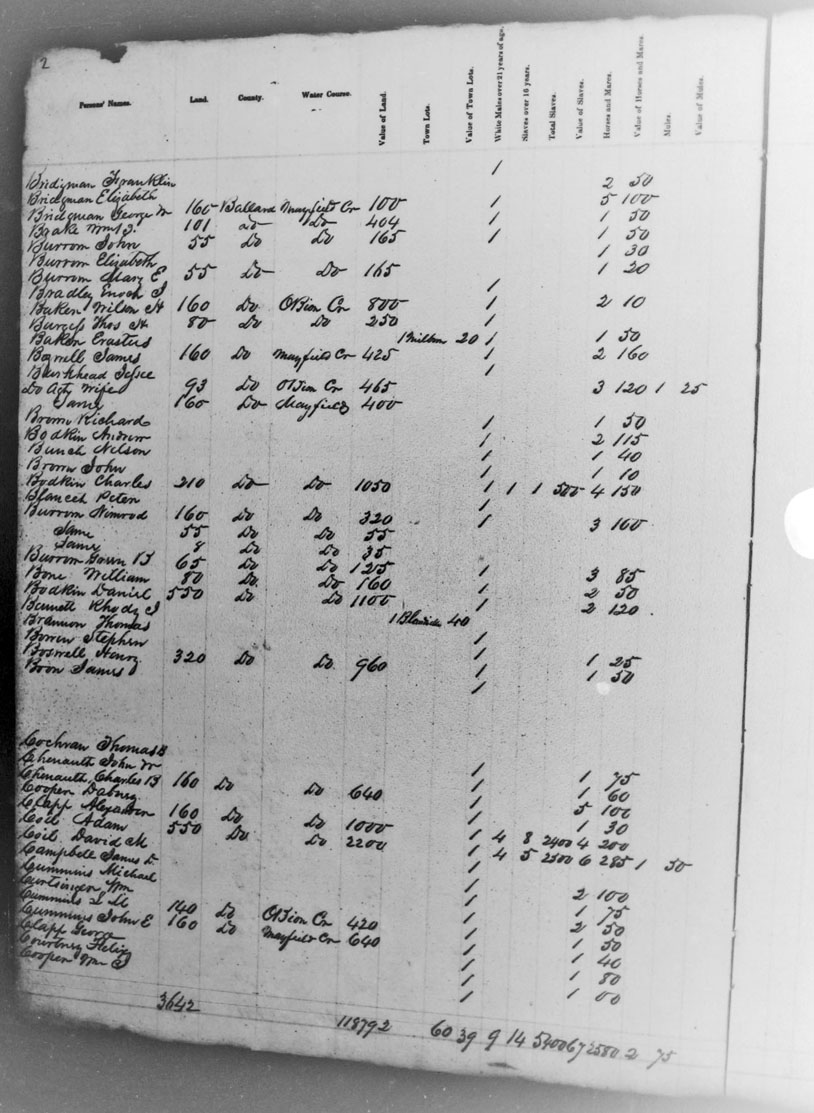 2
Persons' Names. Land. County. Water Course. Value of Land. Town Lots. Value of Town Lots. White Males over 21 years of age. Slaves over 16 years. Total Slaves. Value of Slaves. Horses and Mares. Value of Horses and Mares. Mules. Value of Mules.
Bridgman Franklin 1 2 50
Bridgman Elizabeth 5 100
Bridgman George W 160 Ballard Mayfield Cr 100 1 1 50
Brake Wm J. 101 Do Do 404 1 1 50
Burrom John 55 Do Do 165 1 1 30
Burrom Elizabeth 1 20
Burrom Mary E 55 Do Do 165
Bradley Enoch J 1
Baker Wilson H 160 Do OBion Cr 800 1 2 10
Burgess Thos H 80 Do Do 250 1
Baker Erasters 1 Milbern 20 1 1 50
Bagwell James 160 Do Mayfield Cr 425 1 2 160
Burkhead Jesse 1
Do Agt Wife 93 Do OBion Cr 465 3 120 1 25
Same 160 Do Mayfield 400
Brown Richard 1 1 50
Bodkin Andrew 1 2 115
Bunch Nelson 1 1 40
Brown John 1 1 10
Bodkin Charles 210 Do Do 1050 1 1 1 500 4 150
Peter 1
Burrom Nimrod 160 Do Do 320 1 3 100
Same 55 Do Do 55
Same 8 Do Do 35
Burrom B 65 Do Do 125 1 3 85
Bone William 80 Do Do 160 1 2 50
Bodkin Daniel 550 Do Do 1100 1 2 120
Bennett Rhody J
Brannon Thomas 1 40 1
Stephen 1
Boswell Henry 320 Do Do 960 1 1 25
Boon James 1 1 50
Cochran Thomas B 1
Chenauth John W 1 1 75
Chenauth Charles B 160 Do Do 640 1 1 60
Cooper 1 5 100
Clapp Alexander 160 Do Do 1000 1 1 30
Coil Adam 550 Do Do 2200 1 4 8 2400 4 200
Coil David M 1 4 5 2500 6 285 1 50
Campbell James D 1
Cummins Michael 1 2 100
Curtsinger Wm 1 1 75
Cummins L M 140 Do OBion Cr 420 1 2 50
Cummins John E 160 Do Mayfield Cr 640 1 1 50
Clapp George 1 1 40
Courtney Felix 1 1 80
Cooper Wm J 1 1 00
3642 118792 60 39 9 14 5400 67 2580 2 75